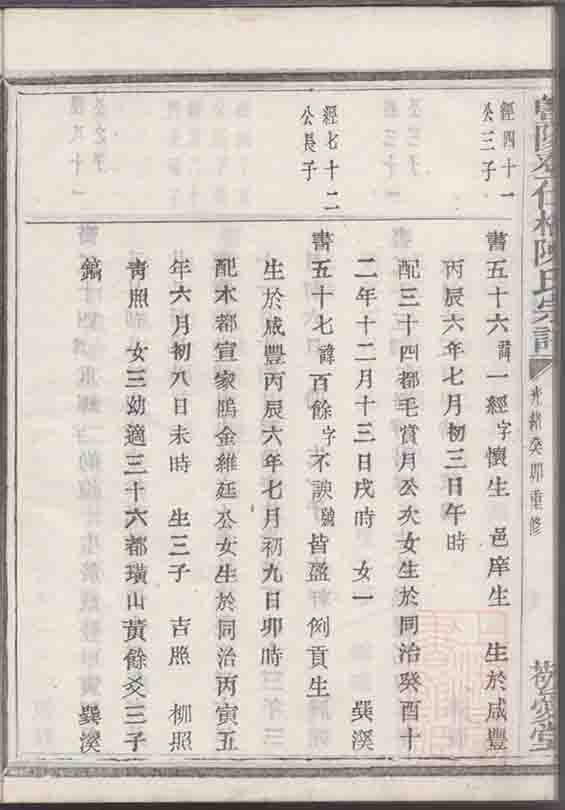 陳氏宗譜
光緒癸卯重修
經四十一
公三子
書五十六諱一經字懷生　邑庠生　生於咸豐
丙辰六年七月初三日午時
配三十四都毛賞月公次女生於同治癸酉十
二年十二月十三日戌時　女一　　巽溪
經七十二
公長子
書五十七諱百餘字不諛號皆盈例貢生
生於咸豐丙辰六年七月初九日卯時
配木都宣家鴋金維廷公女生於同治丙寅五
年六月初八日未時　生三子　吉照　柳照
靑照　女三幼適三十六都璜山黃餘爻三子
鎬　　巽溪